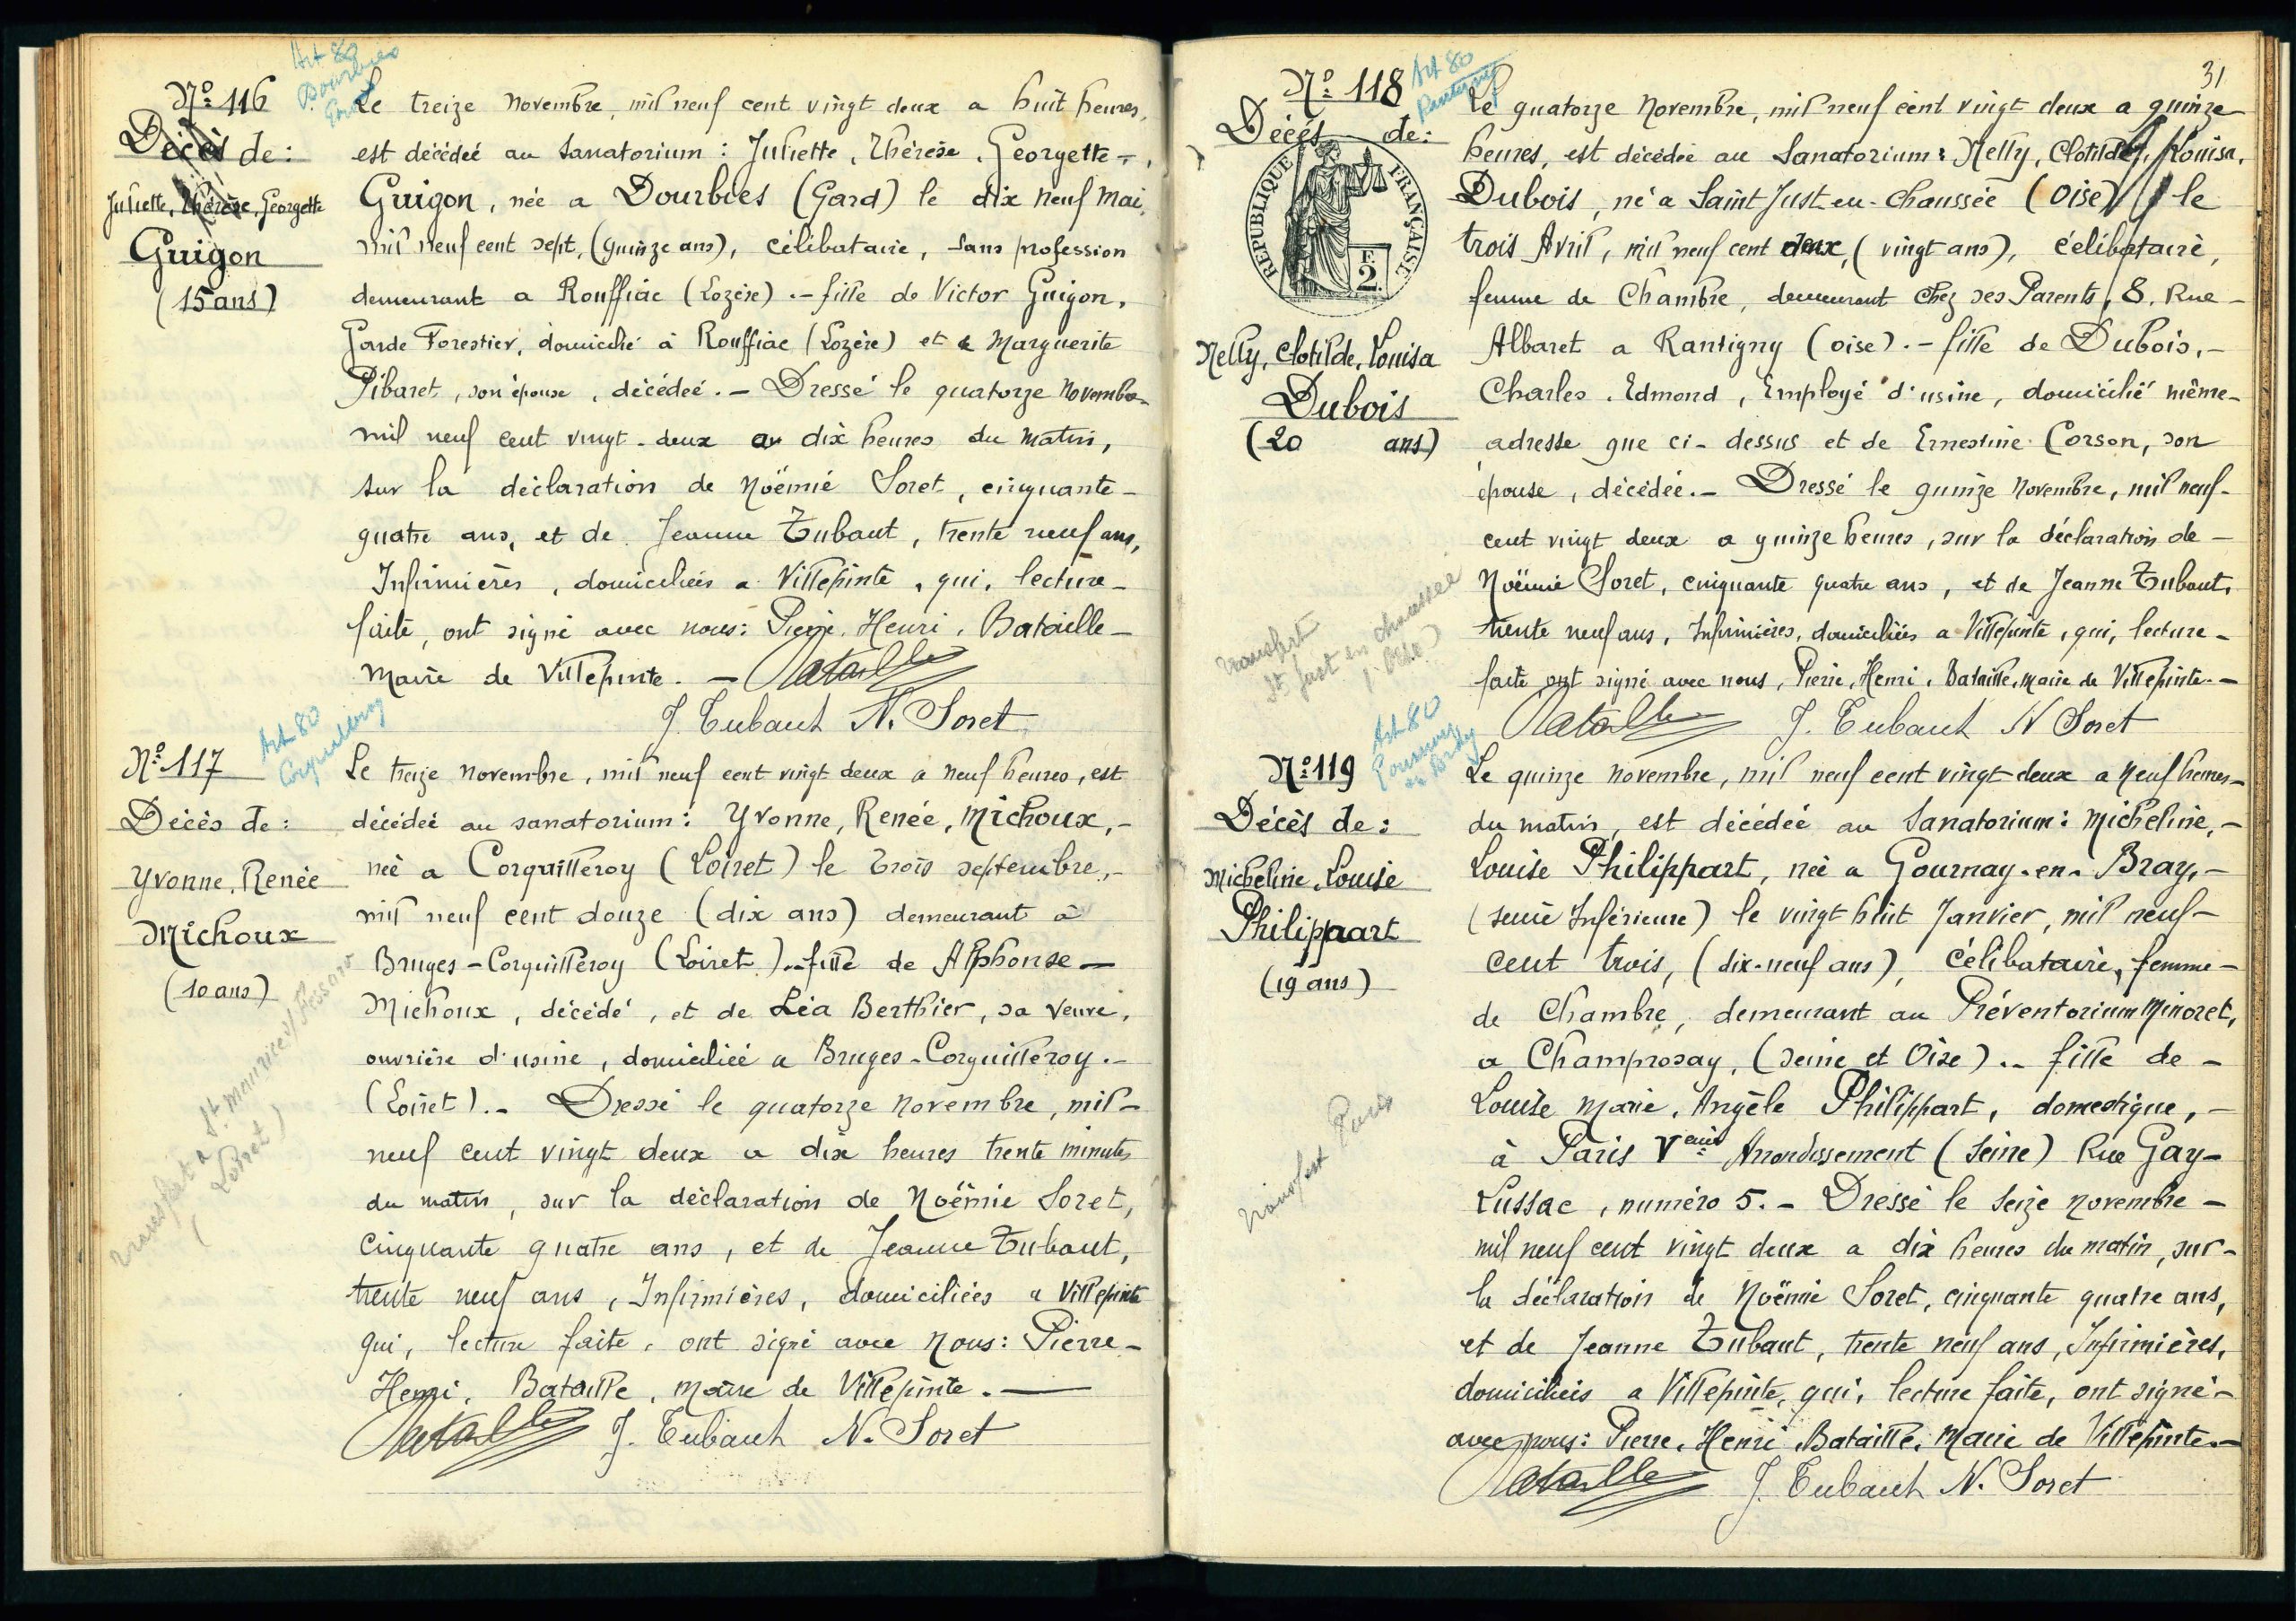 Art 80
Dourbies
Gard
Nº 116
Décès de:
Juliette, Thérèse, Georgette
Guigon
(15 ans)
Le treize Novembre, mil neuf cent vingt deux a huit heures,
est décédée au Sanatorium : Juliette, Thérèse, Georgette -,
Guigon, née a Dourbies (Gard) le dix neuf Mai,
mil neuf cent sept, (quinze ans), célibataire, sans profession
demeurant a Rouffiac (Lozère) .- fille de Victor Guigon,
Garde Forestier, domicilié à Rouffiac (Lozère) et de Marguerite
Pibaret, son épouse, décédée. - Dressé le quatorze Novembre -
mil neuf cent vingt-deux a dix heures du matin,
sur la déclaration de Noëmie Soret, cinquante -
quatre ans, et de Jeanne Tubaut, trente neuf ans,
Infirmières, domiciliées a Villepinte, qui, lecture -
faite, ont signé avec nous: Pierre, Henri, Bataille -
Maire de Villepinte. - Bataille
J. Tubaut N. Soret
Art 80
Corquilleroy
Nº 117
Décès de:
Yvonne, Renée
Michoux
(10 ans)
transfert a St Maurice s/ Fessard
(Loiret)
Le treize novembre, mil neuf cent vingt deux a neuf heures, est
décédée au sanatorium: Yvonne, Renée, Michoux, -
née a Corquilleroy (Loiret) le trois septembre, -
mil neuf cent douze (dix ans) demeurant à
Bruges - Corquilleroy (Loiret). - fille de Alphonse -
Michoux, décédé, et de Léa Berthier, sa veuve,
ouvrière d'usine, domiciliée a Bruges - Corquilleroy. -
(Loiret). - Dressé le quatorze novembre, mil -
neuf cent vingt deux a dix heures trente minutes
du matin, sur la déclaration de Noëmie Soret,
Cinquante quatre ans, et de Jeanne Tubaut,
trente neuf ans, Infirmières, domiciliées a Villepinte
qui, lecture faite, ont signé avec Nous: Pierre -
Henri, Bataille, Maire de Villepinte. -
Bataille J. Tubaut N. Soret
31
Art 80
Nº 118
Décès de:
REPUBLIQUE FRANÇAISE
F.
2.
Nelly, Clotilde, Louisa
Dubois
(20 ans)
transfert
St Just en chaussée
(Oise)
Le quatorze Novembre, mil neuf cent vingt deux a quinze
heures, est décédée au Sanatorium: Nelly, Clotilde, Louisa,
Dubois, né a Saint Just-en-Chaussée (Oise) le
trois Avril, mil neuf cent deux, (vingt ans), célibataire,
femme de Chambre, demeurant chez ses Parents, 8, Rue -
Albaret a Rantigny (oise). - fille de Dubois, -
Charles, Edmond, Employé d'usine, domicilié même -
adresse que ci-dessus et de Ernestine Corson, son
épouse, décédée. - Dressé le quinze Novembre, mil neuf -
cent vingt deux a quinze heures, sur la déclaration de -
Noëmie Soret, cinquante quatre ans, et de Jeanne Tubaut,
trente neuf ans, Infirmières, domiciliées a Villepinte, qui, lecture -
faite ont signé avec nous, Pierre, Henri, Bataille, Maire de Villepinte. -
Bataille J. Tubaut N Soret
Art 80
Gournay
en Bray
Nº 119
Décès de:
Micheline, Louise
Philippart
(19 ans)
transfert Paris
Le quinze novembre, mil neuf cent vingt-deux a neuf heures -
du matin, est décédée au Sanatorium: Micheline, -
Louise Philippart, née a Gournay-en-Bray, -
(Seine Inférieure) le vingt huit Janvier, mil neuf -
cent trois, (dix-neuf ans), célibataire, femme -
de Chambre, demeurant au Préventorium Minoret,
a Champrosay, (Seine et Oise). - fille de -
Louise Marie, Angèle Philippart, domestique, -
à Paris Vème Arrondissement (Seine) Rue Gay-
Lussac, numéro 5. - Dressé le seize novembre -
mil neuf cent vingt deux a dix heures du matin, sur -
la déclaration de Noëmie Soret, cinquante quatre ans,
et de Jeanne Tubaut, trente neuf ans, Infirmières,
domiciliées a Villepinte, qui, lecture faite, ont signé -
avec nous: Pierre, Henri, Bataille, Maire de Villepinte. -
Bataille J. Tubaut N. Soret